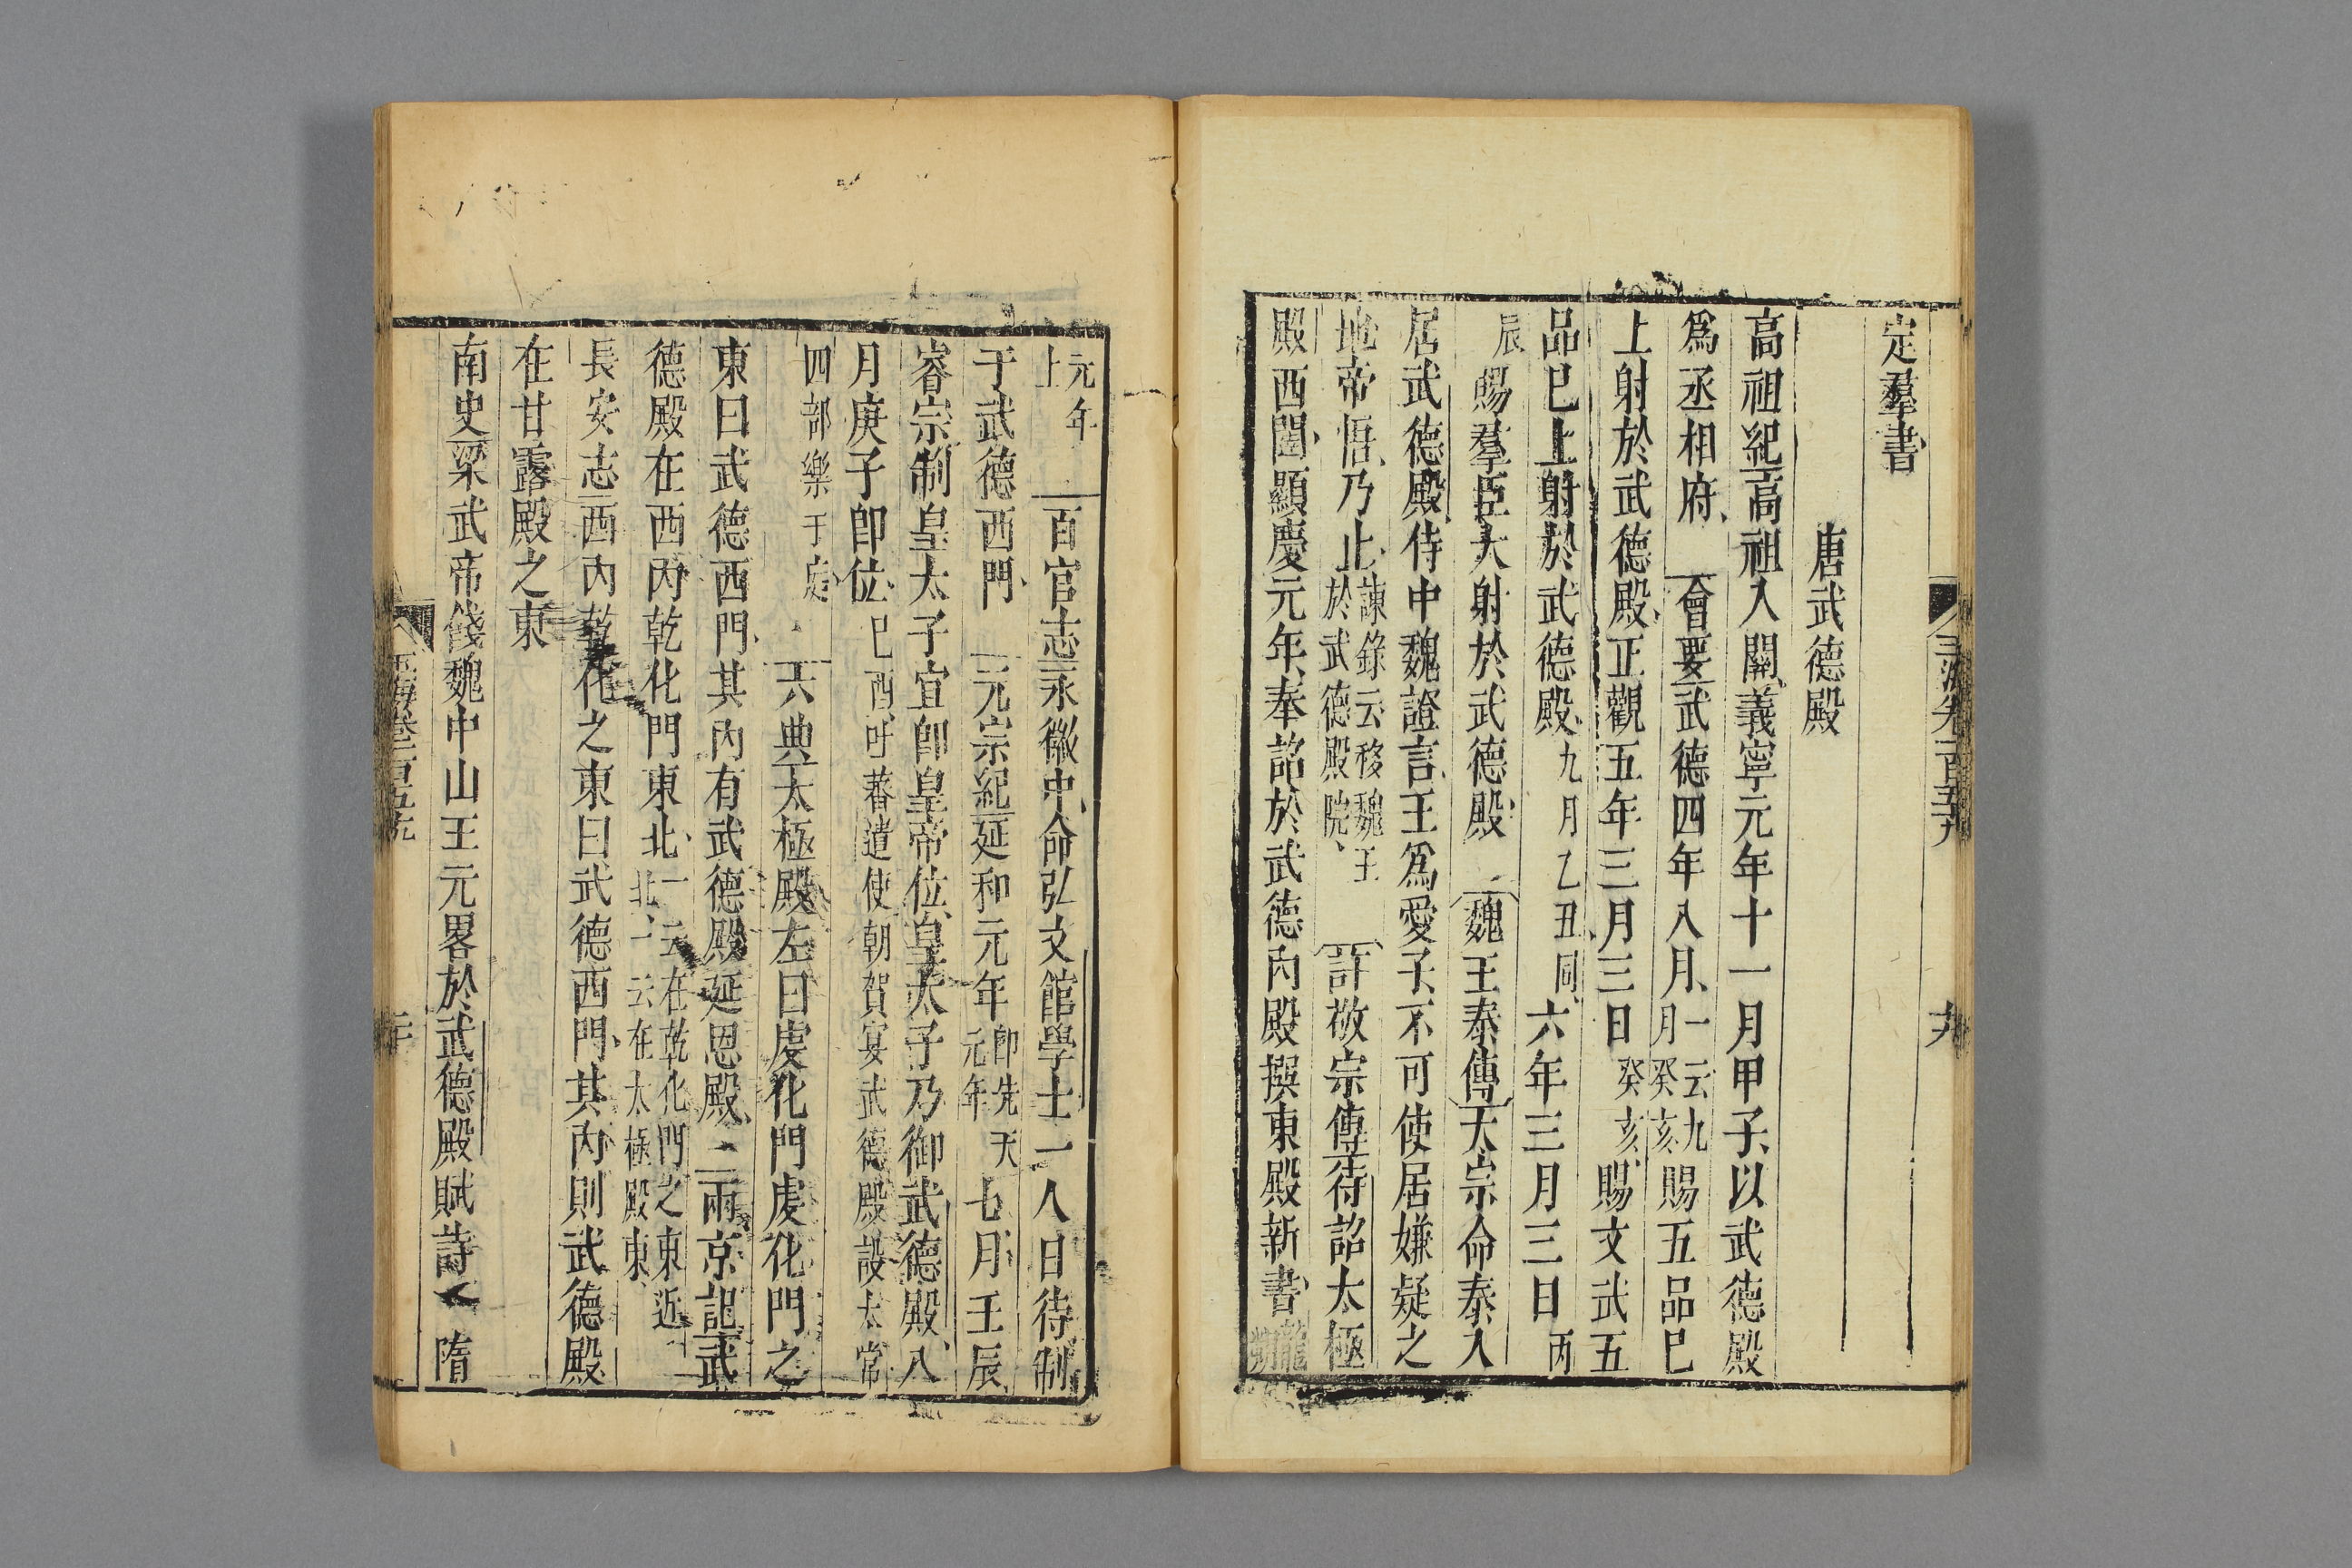 定羣書
唐武德殿
高祖紀高祖入關義寧元年十一月甲子以武德殿
爲丞相府會要武德四年八月一云九月癸亥賜五品巳
上射於武德殿正觀五年三月三日癸亥賜文武五
品巳上射於武德殿九月乙丑同六年三月三日丙
辰賜羣臣大射於武德殿魏王泰傳太宗命泰入
居武德殿侍中魏證言王爲愛子不可使居嫌疑之
地帝悟乃止諫錄云移魏王於武德殿院許敬宗傳待詔太極
殿西闥顯慶元年奉詔於武德內殿撰東殿新書龍朔
元年上百官志永徽中命弘文館學士一人日待制
于武德西門元宗紀延和元年卽先天元年七月壬辰
睿宗制皇太子宜卽皇帝位皇太子乃御武德殿八
月庚子卽位巳酉吐蕃遣使朝賀宴武德殿設太常
四部樂于庭六典太極殿左曰虔化門虔化門之
東曰武德西門其內有武德殿延恩殿二兩京記武
德殿在西內乾化門東北一云在乾化門之東近北一云在太極殿東
長安志西內乾化之東曰武德西門其內則武德殿
在甘露殿之東
南史梁武帝餞魏中山王元畧於武德殿賦詩隋